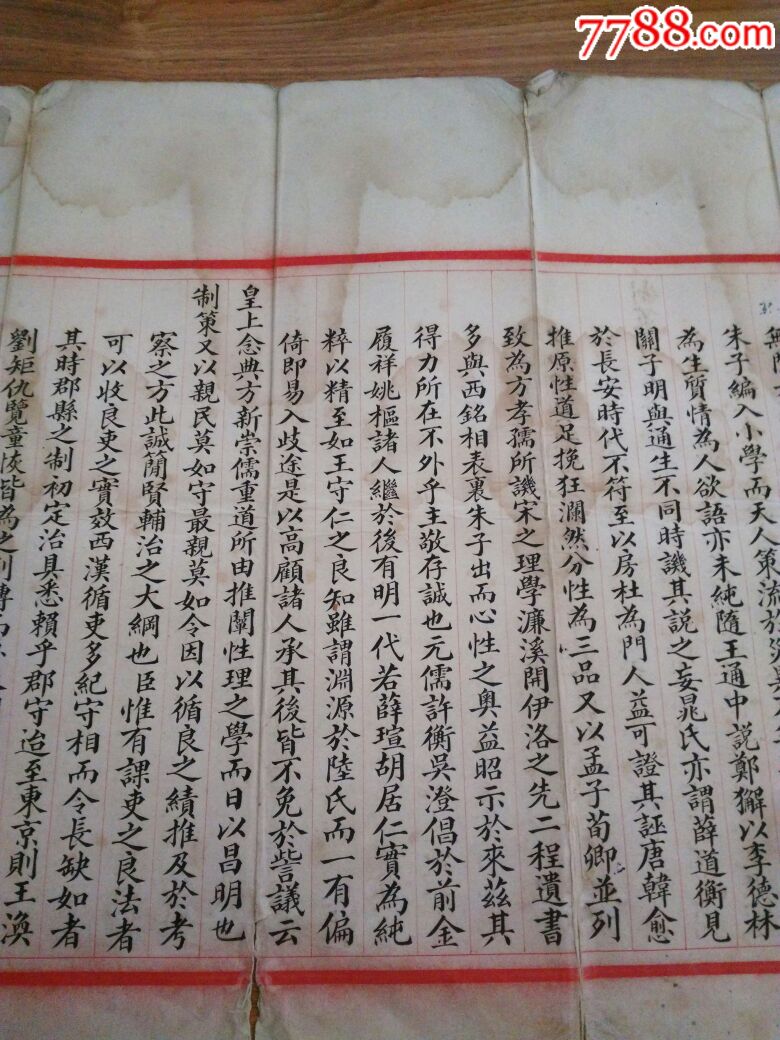 7788.com
朱子編入小學而天人策流於災異
為生質情為人欲語亦未純隨王通中說鄭獬以李德林
關子明與通生不同時譏其說之妄晁氏亦謂薛道衡見
於長安時代不符至以房杜為門人益可證其誣唐韓愈
推原性道足挽狂瀾然分性為三品又以孟子荀卿並列
致為方孝孺所譏宋之理學濂溪開伊洛之先二程遺書
多與西銘相表裏朱子出而心性之奧益昭示於來茲其
得力所在不外乎主敬存誠也元儒許衡吳澄倡於前金
履祥姚樞諸人繼於後有明一代若薛瑄胡居仁實為純
粹以精至如王守仁之良知雖謂淵源於陸氏而一有偏
倚即易入歧途是以高顧諸人承其後皆不免於訾議云
皇上念典方新崇儒重道所由推闡性理之學而日以昌明也
制策又以親民莫如守最親莫如令因以循良之績推及於考
察之方此誠簡賢輔治之大綱也臣惟有課吏之良法者
可以收良吏之實效西漢循吏多紀守相而令長缺如者
其時郡縣之制初定治具悉賴乎郡守迨至東京則王渙
劉矩仇覽童恢皆為之列傳